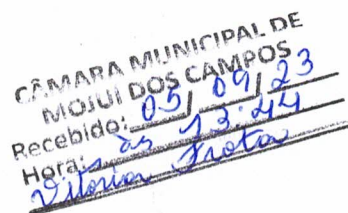 CÂMARA MUNICIPAL DE
MOJUÍ DOS CAMPOS
Recebido: 05/09/23
Hora: às 13:44
Vitória Frota